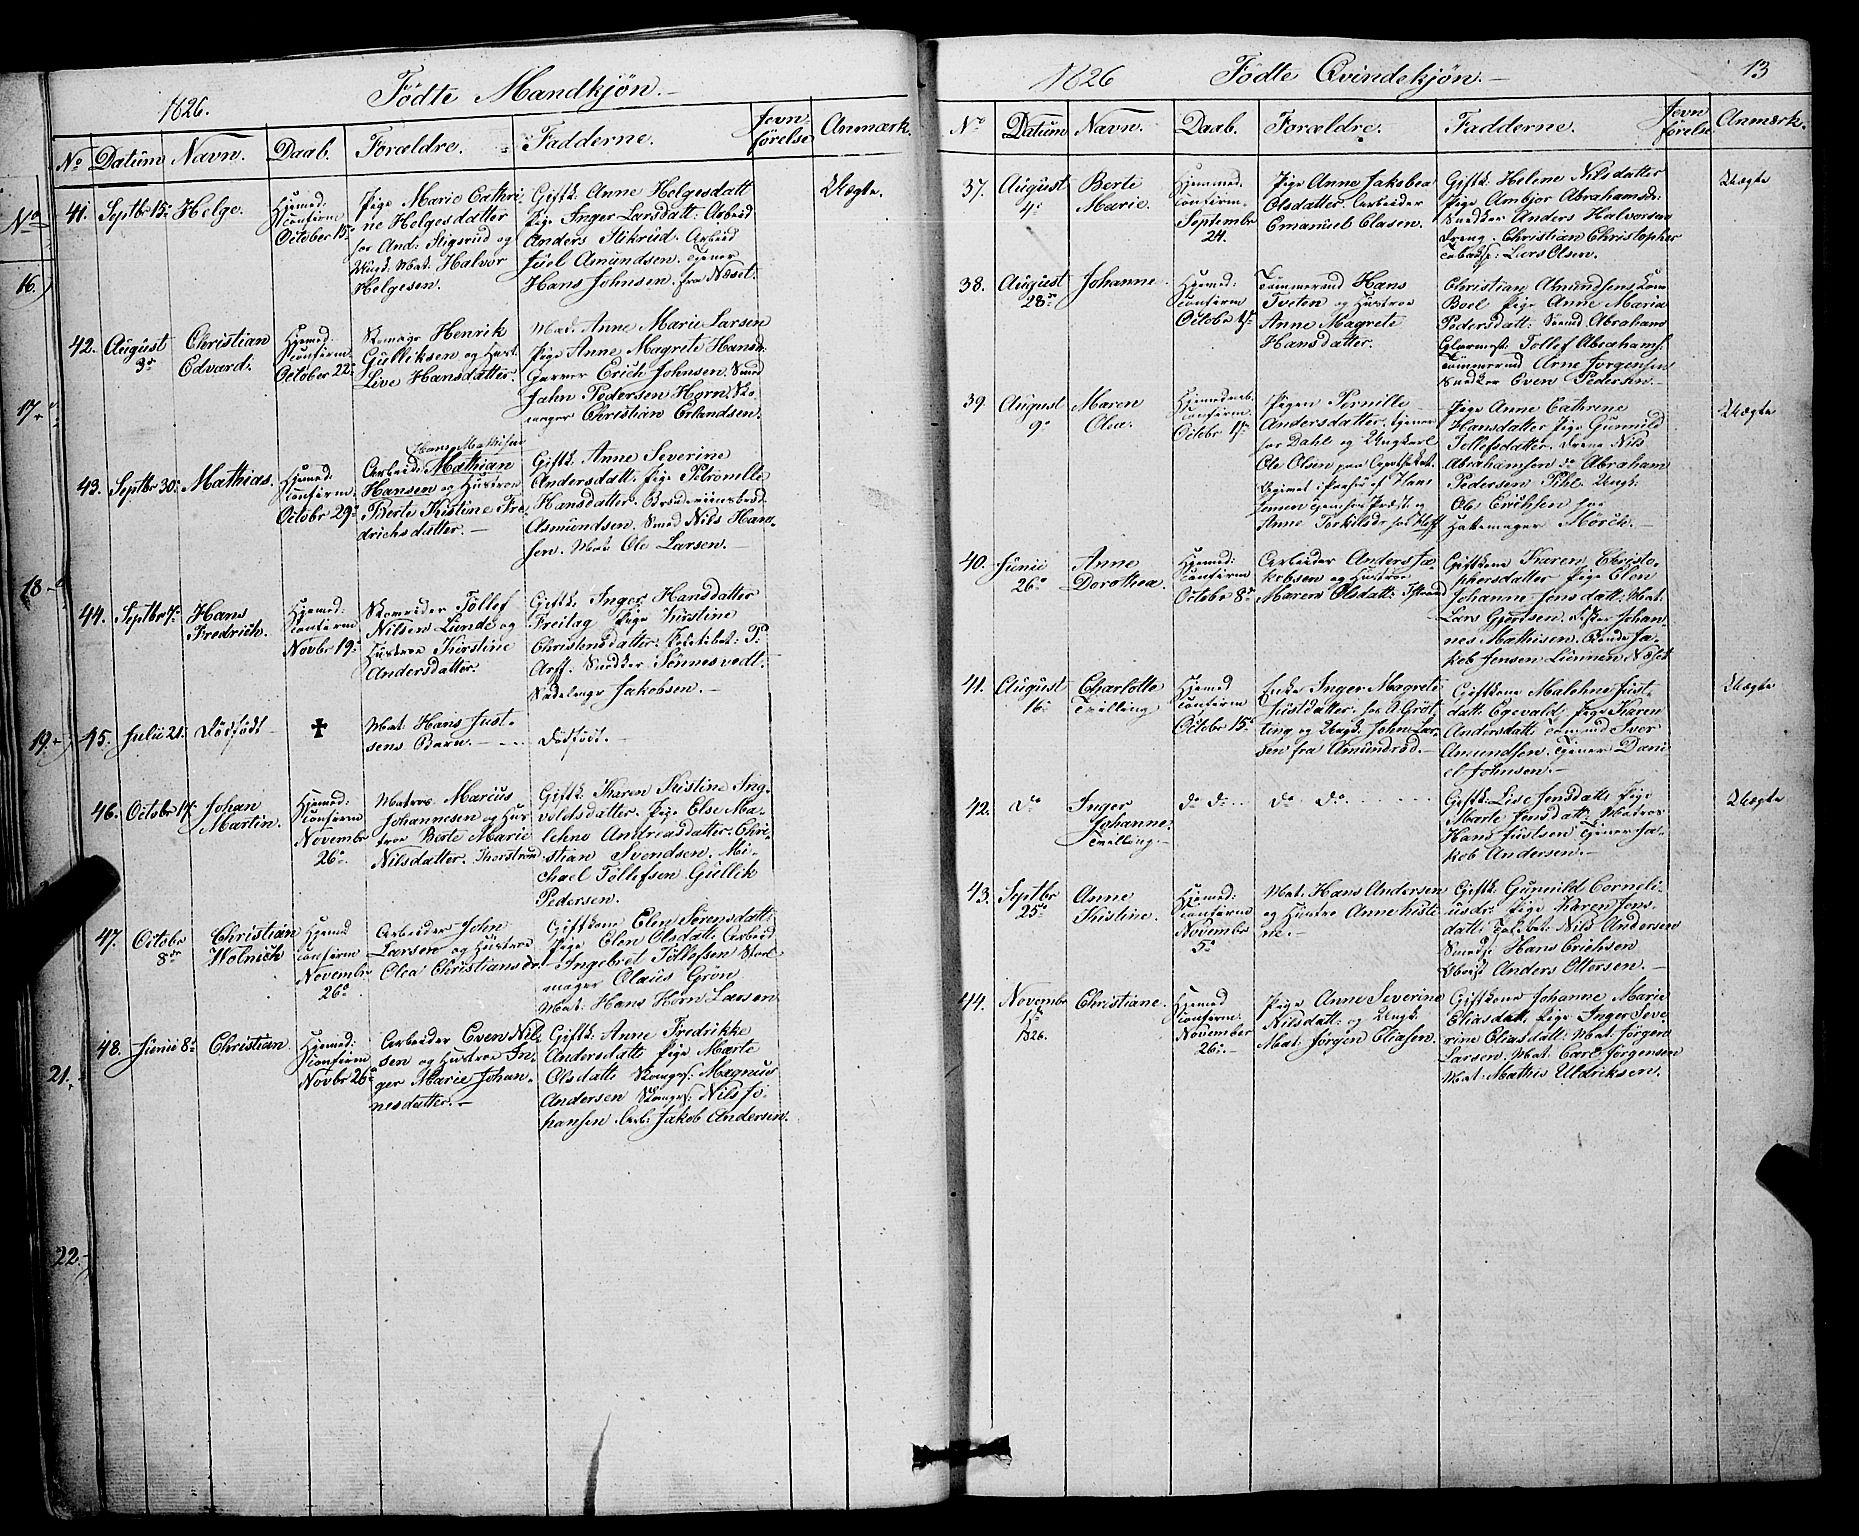 1826. Födte Mandkjøn.
No Datum Navn. Daab. Forældre. Fadderne. Jevn-
førelse Anmærk.
41. Septbr 15 Helge.
Hjemed:
Confirm
October 15
Pige Marie Cathri
ne Helgesdatter
for And: Stigsrud og
Ungk. Mat. Halvor
Helgesen.
Giftk. Anne Helgesdatt
Pige Inger Larsdatt: Arbeid
Anders Stikrud. Arbeid
Juel Amundsen. Tjener
Hans Johnsen. fra Næset.
Uægte.
42. August
3
Christian
Edvard.
Hjemed:
Confirm
October 22
Henrik
Gulliksen og Hust.
Live Hansdatter.
Mad. Anne Marie Larsen
Pige Anne Magrete Hansd:
Garver Erich Johnsen. Smed
John Pedersen Horn. Sko-
mager Christian Erlandsen.
43. Septbr 30 Mathias.
Hjemed:
Confirm.
Octobr 29
Hans Mathisen
Arbeid: Mathian
Hansen og Hustroe
Berte Kistine Fre-
drichsdatter.
Giftk. Anne Severine
Andersdatt. Pige Petronille
Hansdatter.
Asmundsen. Smed Nils Han-
sen. Mat. Ole Larsen.
44. Septbr 7 Hans
Fredrich.
Hjemed:
Confirm
Novbr 19
Tollef
Nilsen Lunde og
Hustroe Kirstine
Andersdatter
Giftk. Inger Hansdatter
Freitag Pige Kistine
Christensdatter. P:
Arff. Snedker Sonnesvedt.
Jakobsen.
45. Julii 21. Dödfödt ✝
Mat. Hans Just-
sens Barn.
Dödfödt.
46. Octobr 14 Johan
Martin.
Hjemed:
Confirm
Novembr
26
Matros Marcus
Johannesen og Hus-
troe Berte Marie
Nilsdatter.
Giftk. Karen Kistine Ing-
voldsdatter. Pige Else Ma-
lehne Andreasdatter. Chri-
stian Svendsen. Mi-
chael Tollefsen Gullik
Pedersen.
47. Octobr
8
Christian
Wolnich
Hjemed
Confirm
Novembr
26
Arbeider John
Larsen og Hustroe
Olea Christiansdr.
Giftkone Elen Sörensdatt:
Pige Elen Olsdatt. Arbeid
Ingebret Tollefsen
mager Olaus Grön
Mat. Hans Horn Larsen
48. Junii 8 Christian.
Hjemed:
Confirm
Novbr 26
Arbeider Even Nil-
sen og Hustroe In-
ger Marie Johan-
nesdatter.
Giftk. Anne Fredrikke
Andersdatt Pige Marte
Olsdatt Magnus
Andersen Nils Jo-
hansen Arb: Jakob Andersen.
16.
17.
18
19
21.
22.
1826 Födte Qvindekjön. 13
No Datum Navn. Daab. Forældre. Fadderne. Jevn
förelse Anmærk.
37. August
4
Berte
Marie.
Hjemed.
Confirm.
Septembr
24.
Pige Anne Jakobea
Olsdatter. Arbeider
Emanuel Clasen.
Giftk. Helene Nilsdatter
Pige Ambjor Abrahamsdr:
Snedker Anders Halvorsen
Dreng. Christian Christopher
Lars Olsen.
Uægte
38. August
28
Johanne.
Hjemed:
Confirm
Octobr 1
Tömmermd Hans
Tveten og Hustroe
Anne Magrete
Hansdatter.
Christian Amundsens Kone
Boel Pige Anne Maria
Pedersdatt: Abraham
Glarmest. Tollef Abrahams.
Tömmermd Arne Jorgensen
Snedker Even Pedersen.
39. August
9
Maren
Olea.
Confirm.
Octobr 1
Pigen Pernille
Andersdatter. tjener
for Dahl og Ungkarl
Ole Olsen paa Apotheket.
Hans
Jensen
Anne Torkilsdr
Pige Anne Cathrene
Hansdatter Pige Gunnild
Tollefsdatter. Nils
Abrahamsen do Abraham
Pedersen Pihl. Ungk:
Ole Erichsen hos
Hattemager Mörch.
Uægte
40. Junii
26
Anne
Dorothea.
Hjemed:
Confirm
Octobr 8
Arbeider Anders Ja-
kobsen og Hustroe
Maren Olsdatt:
Giftkone Karen Christo-
phersdatter Pige Elen
Johanne Jensdatt: Mat.
Lars Gjertsen. Johan-
nes Mathisen. Ja-
kob Jensen Lunnen. Næset
41. August
16
Charlotte
Tvilling.
Hjemed
Confirm
Octobr 15
Enke Inger Magrete
Justdatter. hos A. Gröt-
ting og Ungk. John Lar-
sen fra Amundröd.
Giftkone Malehne Just-
datt: Egevald. Pige Karen
Andersdatt: Iver
Amundsen. Tjener Dani-
el Johnsen.
Uægte
42. Do Inger
Johanne.
Tvilling.
do do do do
Giftk. Live Jensdatt Pige
Marte Jensdatt: Matros
Hans Justsen Tjener Ja-
kob Andersen.
Uægte
43. Septbr
25
Anne
Kistine.
Hjemed:
Confirm
Novembr
5
Mat. Hans Andersen
og Hustroe Anne Kisti-
ne.
Giftk. Gunnild Corneli-
usdr. Pige Karen Jens-
datt: Nils Andersen
Smed Hans Erichsen
Anders Ottersen.
44. Novembr
1
1826.
Christiane.
Hjemed
Confirm.
November
26
Pige Anne Severine
Nilsdatt: og Ungk:
Mat. Jörgen Eliasen.
Giftkone Johanne Marie
Eliasdatt. Pige Inger Seve-
rine Eliasdatt: Mat. Jörgen
Larsen. Mat. Carl Jörgensen
Mat: Mathis Uldriksen.